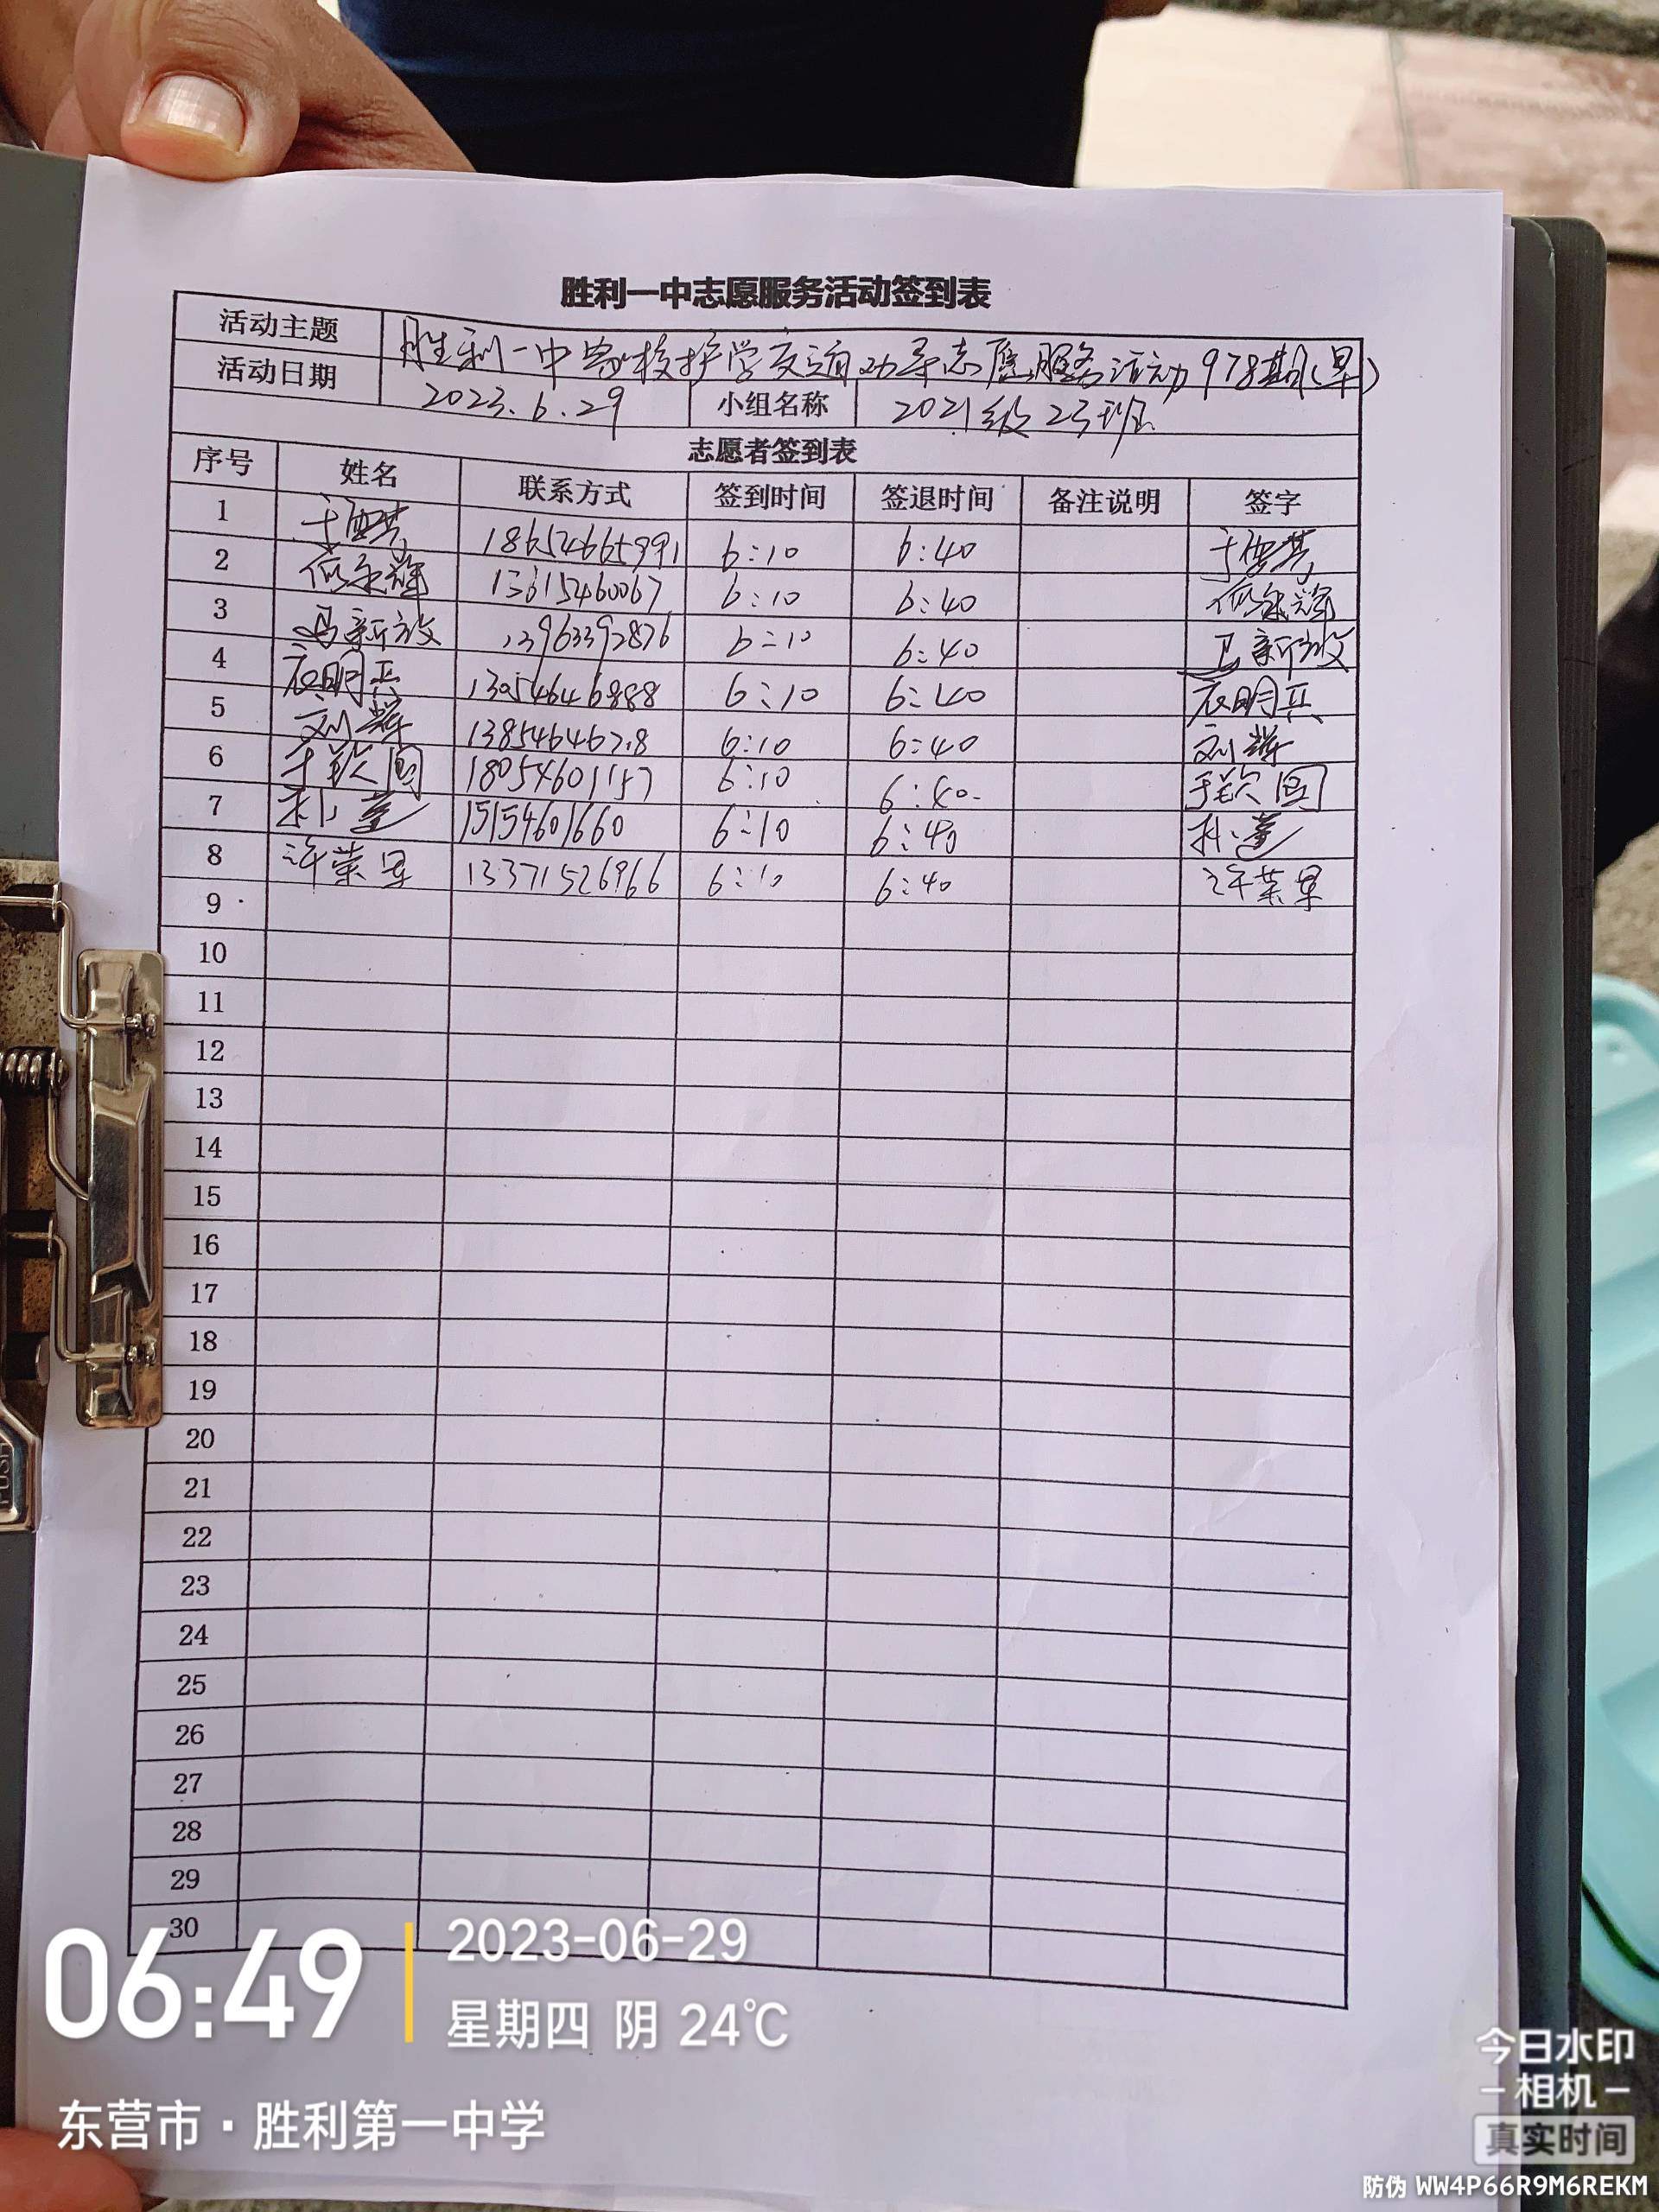 胜利一中志愿服务活动签到表
活动主题 胜利一中家校护学交通劝导志愿服务活动978期(早)
活动日期 2023.6.29 小组名称 2021级23班
志愿者签到表
序号 姓名 联系方式 签到时间 签退时间 备注说明 签字
1 18654665991 6:10 6:40
2 13615460067 6:10 6:40
3 13963392876 6:10 6:40
4 衣明兵 13054646888 6:10 6:40 衣明兵
5 刘辉 6:10 6:40 刘辉
6 于钦圆 18054601157 6:10 6:40 于钦圆
7 15154601660 6:10 6:40
8 许荣军 13371526966 6:10 6:40 许荣军
9
10
11
12
13
14
15
16
17
18
19
20
21
22
23
24
25
26
27
28
29
30
PUSH
06:49
2023-06-29
星期四 阴 24℃
东营市·胜利第一中学
今日水印
-相机-
真实时间
防伪 WW4P66R9M6REKM